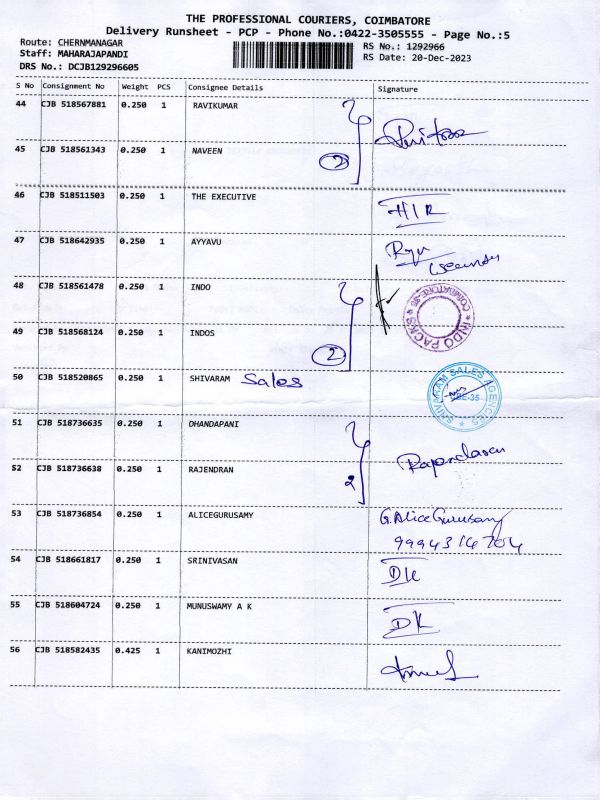 THE PROFESSIONAL COURIERS, COIMBATORE
Delivery Runsheet - PCP - Phone No.:0422-3505555 - Page No.:5
Route: CHERNMANAGAR
Staff: MAHARAJAPANDI
DRS No.: DCJB129296605
RS No.: 1292966
RS Date: 20-Dec-2023
S No Consignment No Weight PCS Consignee Details Signature
44 CJB 518567881 0.250 1 RAVIKUMAR
45 CJB 518561343 0.250 1 NAVEEN 2
46 CJB 518511503 0.250 1 THE EXECUTIVE
47 CJB 518642935 0.250 1 AYYAVU
48 CJB 518561478 0.250 1 INDO
* INDO PACKS * COIMBATORE-35
49 CJB 518568124 0.250 1 INDOS 2
50 CJB 518520865 0.250 1 SHIVARAM Sales
SHIVARAM SALES AGENCIES * CBE-35
51 CJB 518736635 0.250 1 DHANDAPANI
52 CJB 518736638 0.250 1 RAJENDRAN 2
53 CJB 518736854 0.250 1 ALICEGURUSAMY G.AliceGurusamy
9994314704
54 CJB 518661817 0.250 1 SRINIVASAN DK
55 CJB 518604724 0.250 1 MUNUSWAMY A K DK
56 CJB 518582435 0.425 1 KANIMOZHI